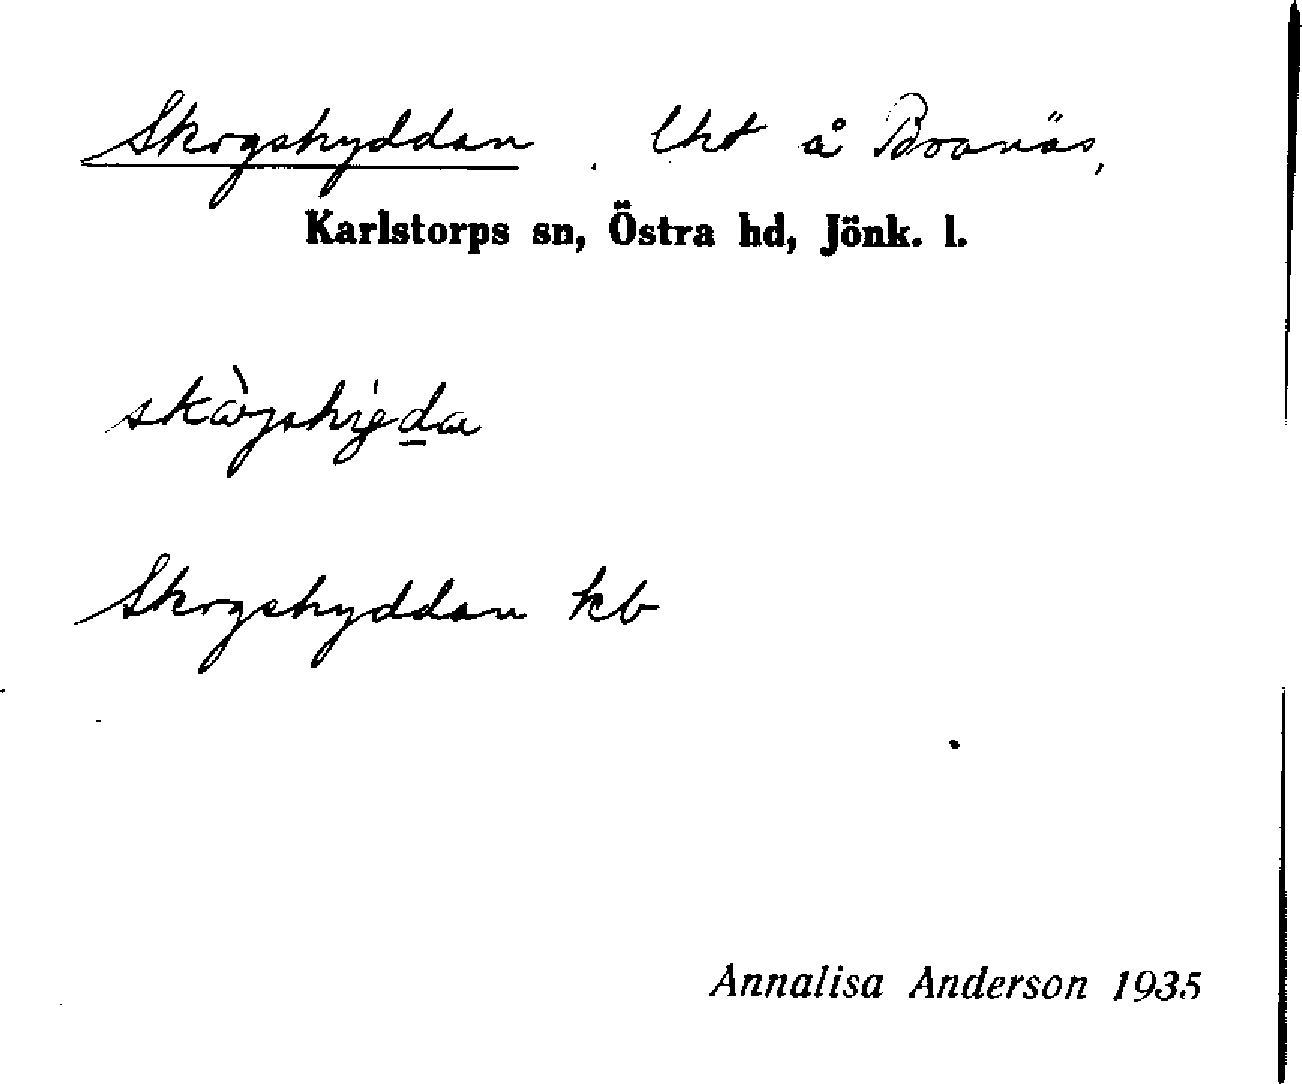 Skogshyddan. Lht å Boanäs,
Karlstorps sn, Östra hd, Jönk. l.
Skogshyddan kb
Annalisa Anderson 1935